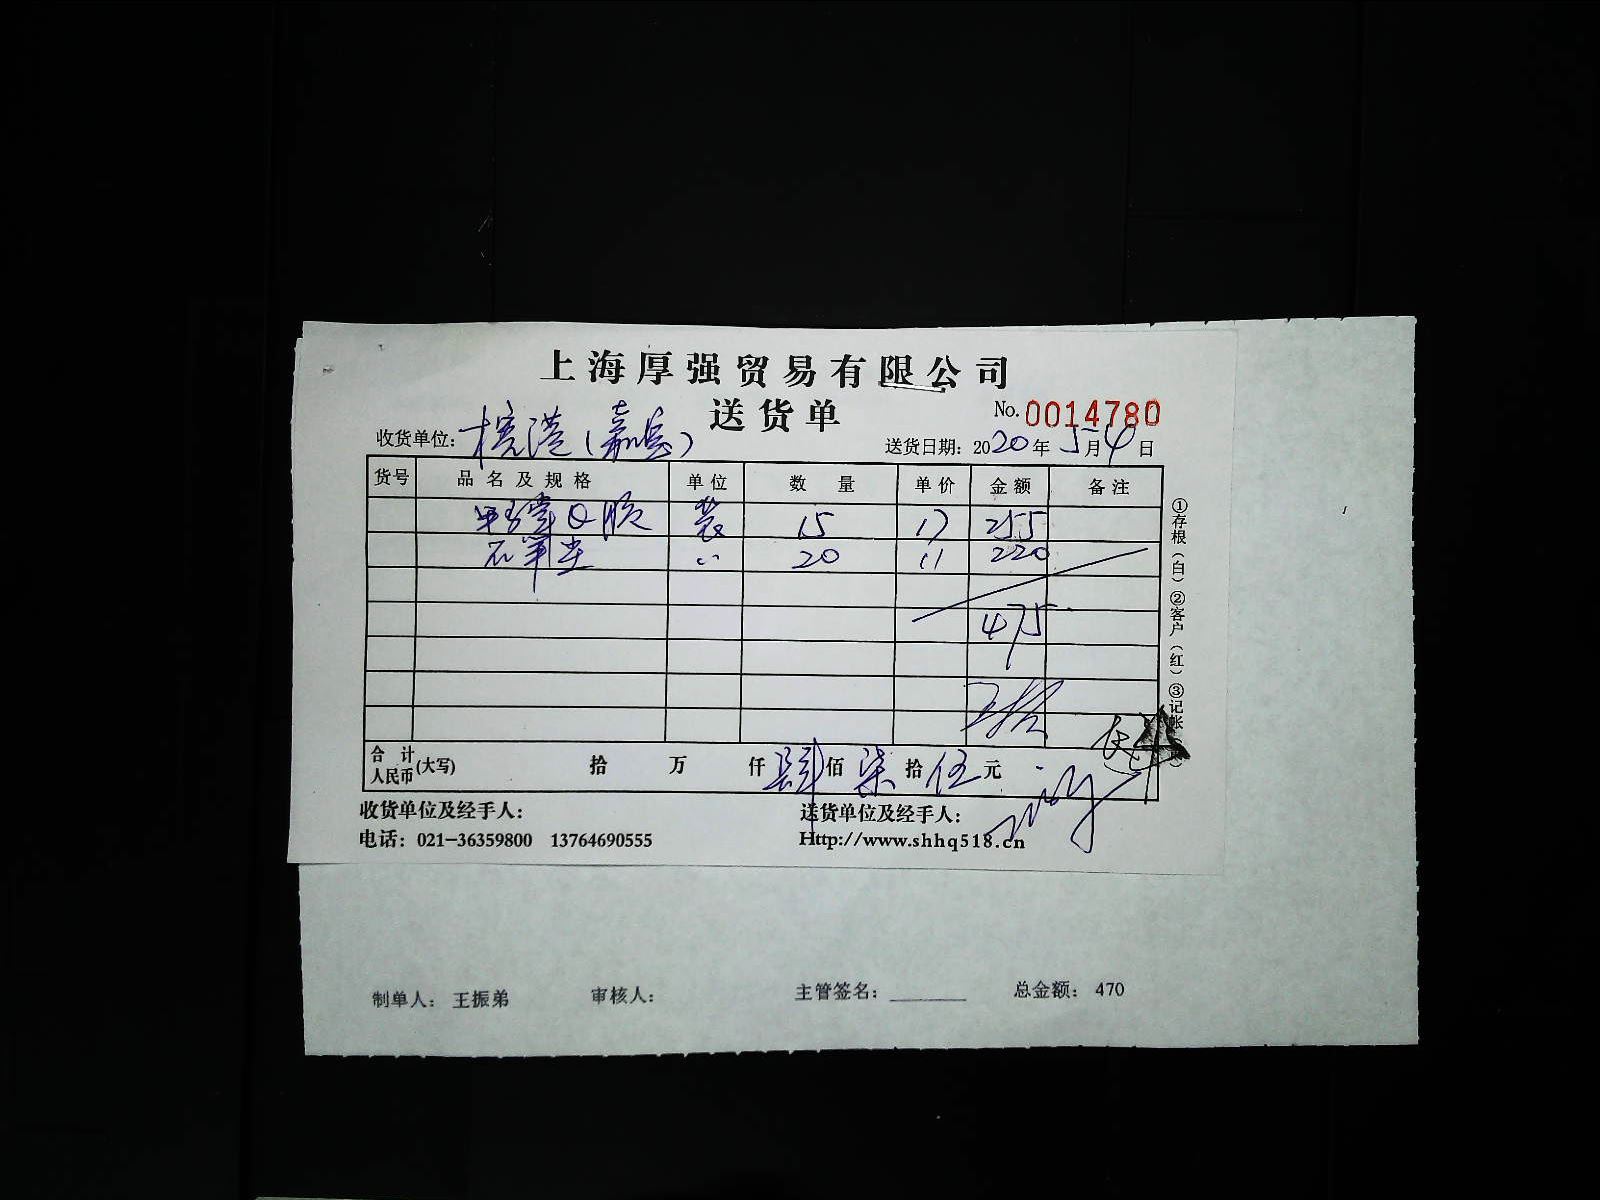 上海厚强贸易有限公司
送货单
No. 0014780
收货单位: 榶港(嘉岛)
送货日期: 2020年5月4日
货号 品名及规格 单位 数量 单价 金额 备注
装 15 17 255
石笔尖 〃 20 11 220
475
合计人民币(大写) 拾 万 仟 肆佰 柒拾 伍元
收货单位及经手人:
送货单位及经手人:
电话: 021-36359800 13764690555
Http://www.shhq518.cn
①存根(白)②客户(红)③记帐
制单人: 王振弟 审核人: 主管签名: 总金额: 470